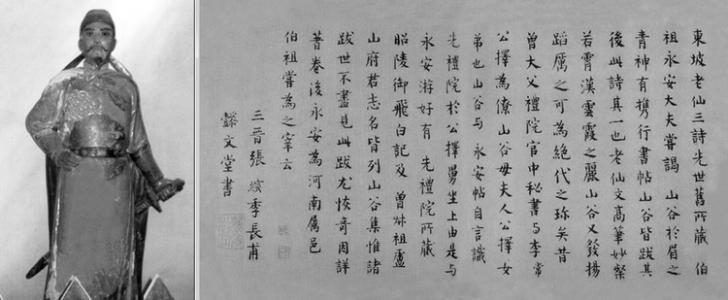 東坡老仙三詩先世舊所藏 伯
祖永安大夫嘗謁 山谷於眉之
青神有携行書帖山谷皆跋其
後此詩其一也老仙文高筆妙粲
若霄漢雲霞之麗山谷又發揚
蹈厲之可為絕代之珍矣昔
曾大父禮院官中秘書與李常
公擇為僚山谷母夫人公擇女
弟也山谷與 永安帖自言識
先禮院於公擇舅坐上由是與
永安游好有 先禮院所藏
昭陵御飛白記及 曾叔祖盧
山府君志名皆列山谷集惟諸
跋世不盡見此跋尤恢奇因詳
著卷後永安為河南屬邑
伯祖嘗為之宰云
三晉張 縯季長甫
懿文堂書